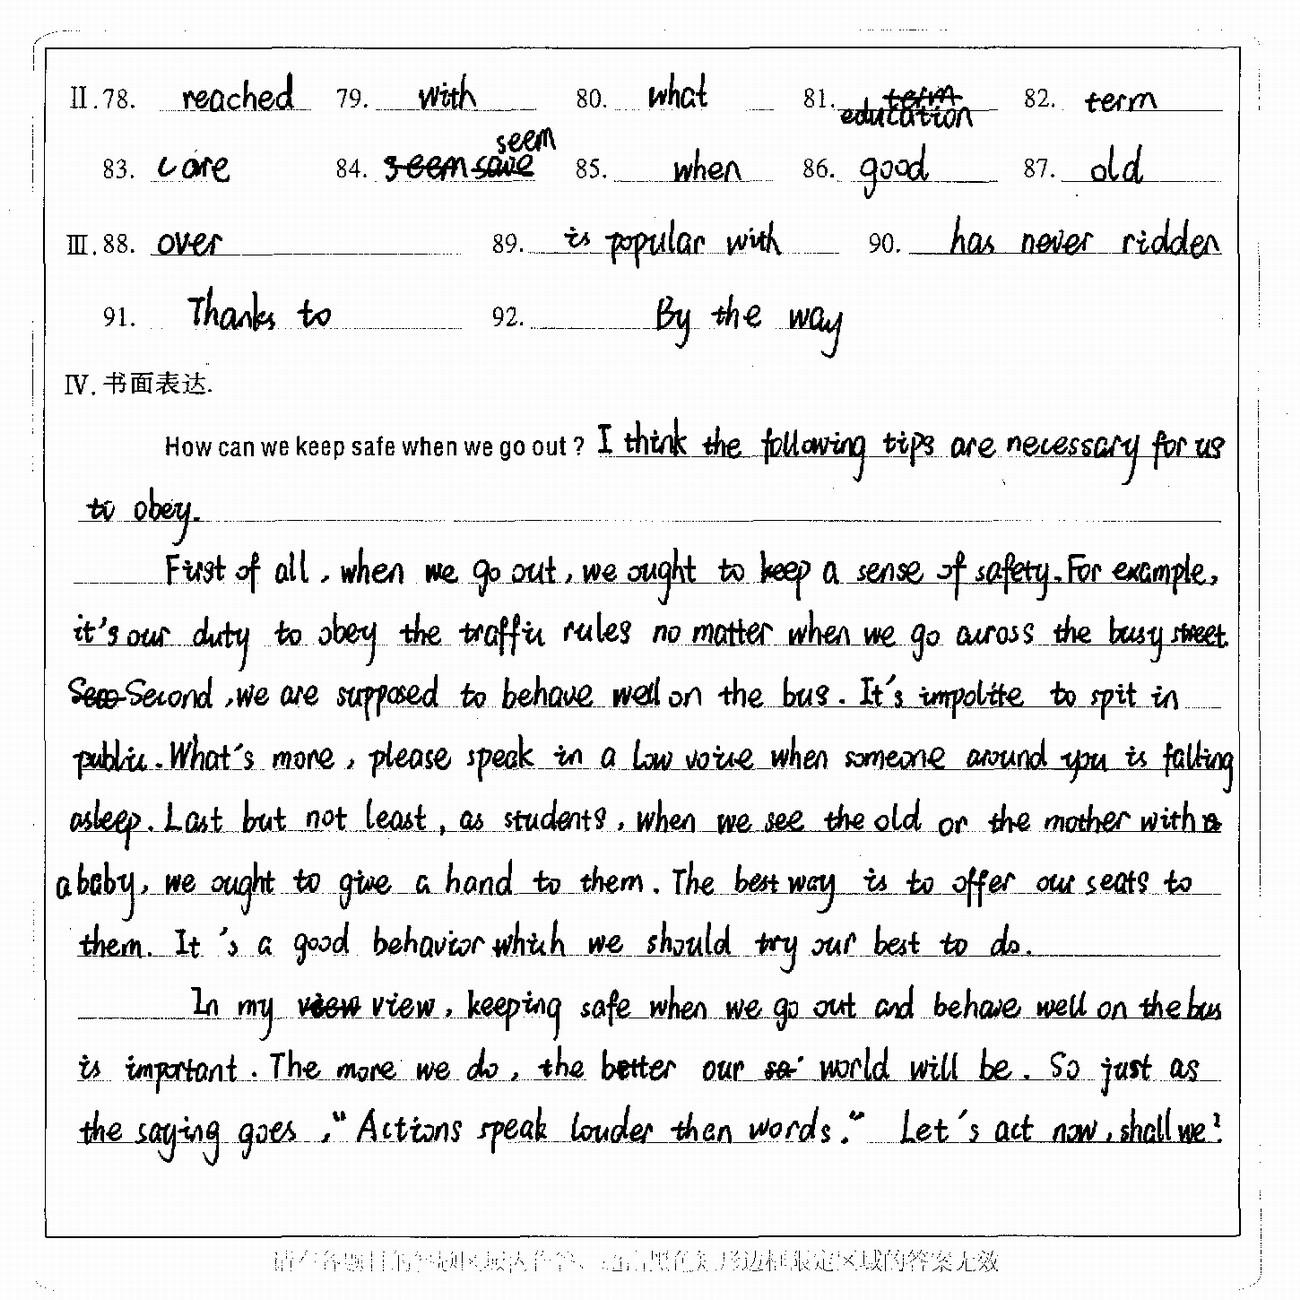 II.78. reached 79. with 80. what 81. education 82. term
83. care 84. seem 85. when 86. good 87. old
III.88. over 89. is popular with 90. has never ridden
91. Thanks to 92. By the way
IV. 书面表达.
How can we keep safe when we go out? I think the following tips are necessary for us
to obey.
First of all, when we go out, we ought to keep a sense of safety. For example,
it's our duty to obey the traffic rules no matter when we go across the busy street.
Second, we are supposed to behave well on the bus. It's impolite to spit in
public. What's more, please speak in a low voice when someone around you is falling
asleep. Last but not least, as students, when we see the old or the mother with
a baby, we ought to give a hand to them. The best way is to offer our seats to
them. It 's a good behavior which we should try our best to do.
In my view, keeping safe when we go out and behave well on the bus
is important. The more we do, the better our world will be. So just as
the saying goes, "Actions speak louder than words." Let's act now, shall we?
请在各题目的答题区域内作答，超出黑色矩形边框限定区域的答案无效